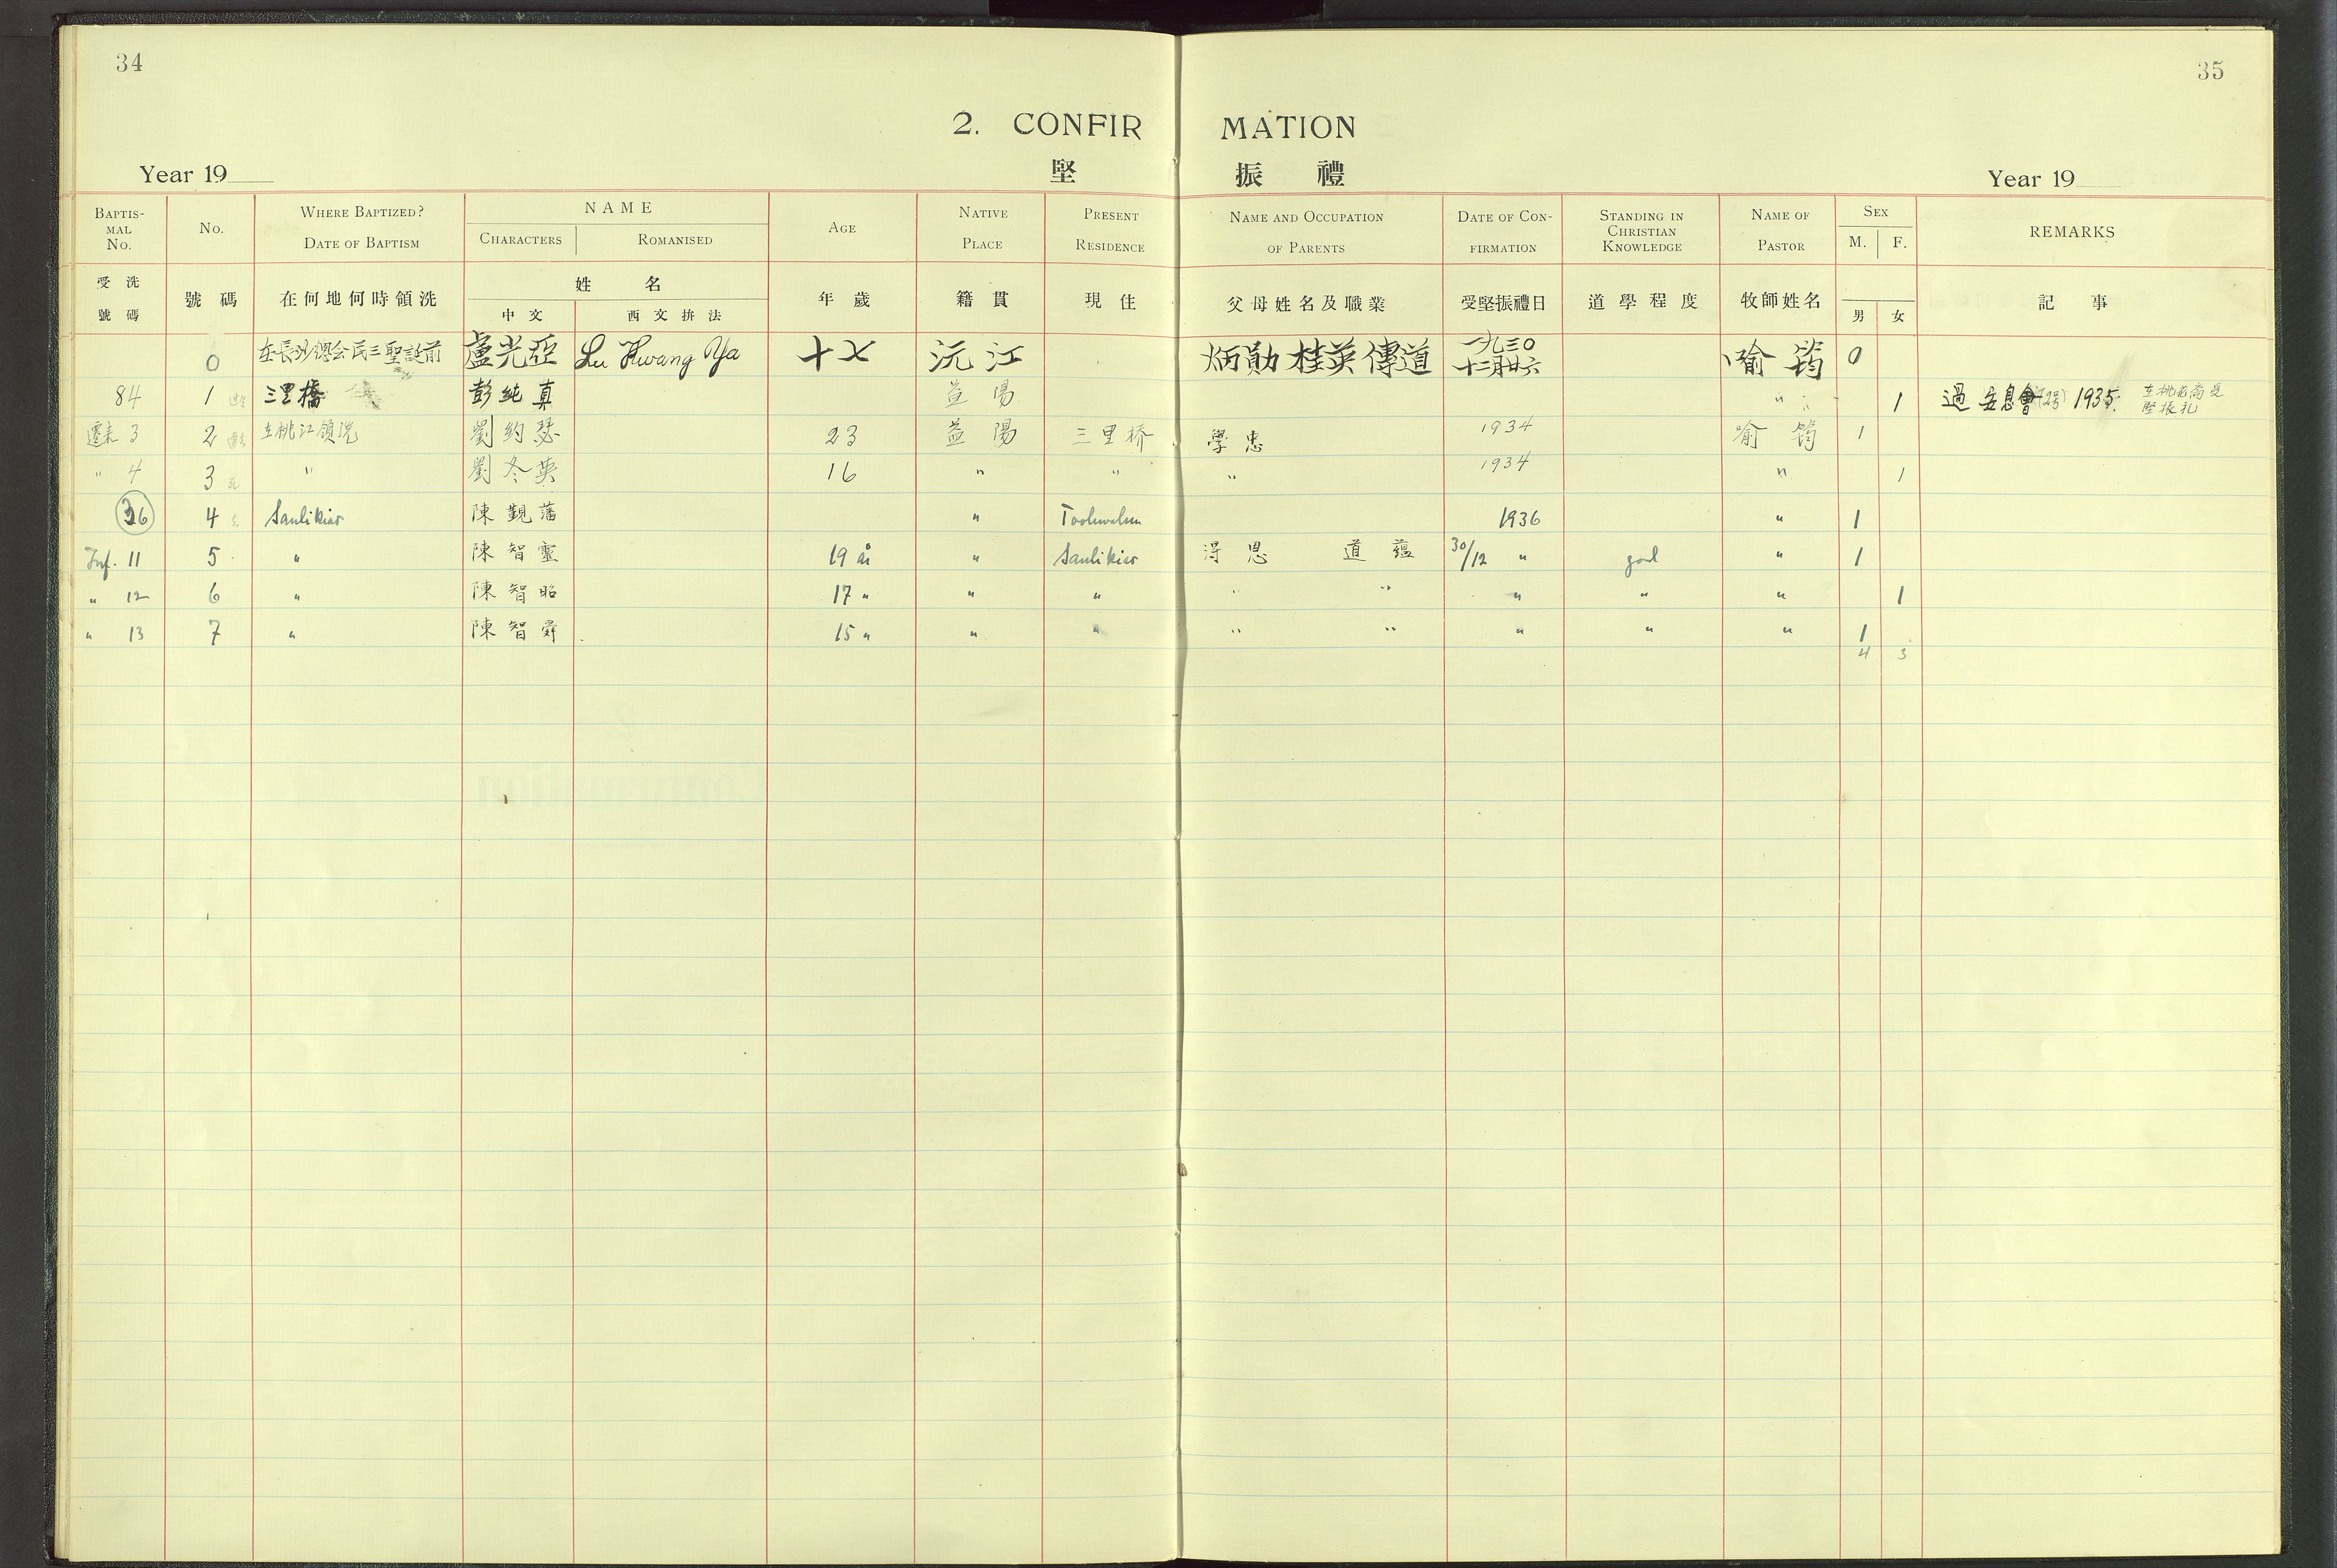 34
35
2. CONFIR MATION
堅 振 禮
Year 19
Year 19
BAPTISMAL No. No. WHERE BAPTIZED? DATE OF BAPTISM NAME CHARACTERS ROMANISED AGE NATIVE PLACE PRESENT RESIDENCE NAME AND OCCUPATION OF PARENTS DATE OF CONFIRMATION STANDING IN CHRISTIAN KNOWLEDGE NAME OF PASTOR SEX M. F. REMARKS
受洗號碼 號碼 在何地何時領洗 姓名 中文 西文拚法 年歲 籍貫 現住 父母姓名及職業 受堅振禮日 道學程度 牧師姓名 男 女 記事
0 在長沙總会民三聖誕前 盧光亞 Lu Kwang Ya 十七 沅江 炳勛 桂英 傳道 一九三〇 十二月廿六 喻筠 0
84 1 三里橋 彭純真 益陽 " 1 過安息會 1935
遷來 3 2 在桃江領洗 劉約瑟 23 益陽 三里桥 學忠 1934 喻筠 1
" 4 3 " 劉冬英 16 " " " 1934 " 1
36 4 Sanlikiao 陳觀藩 " 1936 " 1
Inf. 11 5 " 陳智靈 19 år " Sanlikiao 得恩 道蘊 30/12 " god " 1
" 12 6 " 陳智昭 17 " " " " " " " " 1
" 13 7 " 陳智舜 15 " " " " " " " " 1
4 3